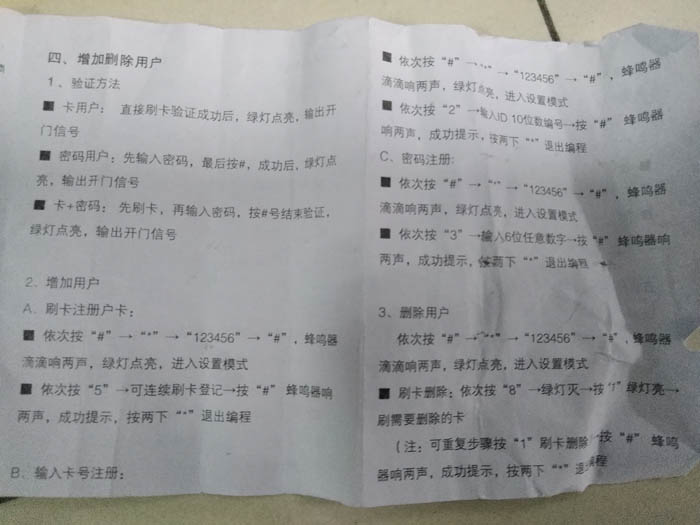 四、增加删除用户
1、验证方法
■ 卡用户： 直接刷卡验证成功后，绿灯点亮，输出开
门信号
■ 密码用户：先输入密码，最后按#，成功后，绿灯点
亮，输出开门信号
■ 卡+密码：先刷卡，再输入密码，按#号结束验证，
绿灯点亮，输出开门信号
2、增加用户
A、刷卡注册户卡：
■ 依次按“#”→“*”→“123456”→“#”，蜂鸣器
滴滴响两声，绿灯点亮，进入设置模式
■ 依次按“5”→可连续刷卡登记→按“#” 蜂鸣器响
两声，成功提示，按两下“*”退出编程
B、输入卡号注册：
■ 依次按“#”→“*”→“123456”→“#”，蜂鸣器
滴滴响两声，绿灯点亮，进入设置模式
■ 依次按“2”→输入ID 10位数编号→按“#” 蜂鸣器
响两声，成功提示，按两下“*”退出编程
C、密码注册：
■ 依次按“#”→“*”→“123456”→“#”，蜂鸣器
滴滴响两声，绿灯点亮，进入设置模式
■ 依次按“3”→输入6位任意数字→按“#”蜂鸣器响
两声，成功提示，按两下“*”退出编程
3、删除用户
依次按“#”→“*”→“123456”→“#”，蜂鸣器
滴滴响两声，绿灯点亮，进入设置模式
■ 刷卡删除：依次按“8”→绿灯灭→按“1”绿灯亮→
刷需要删除的卡
（注：可重复步骤按“1”刷卡删除 按“#” 蜂鸣
器响两声，成功提示，按两下“*”退编程